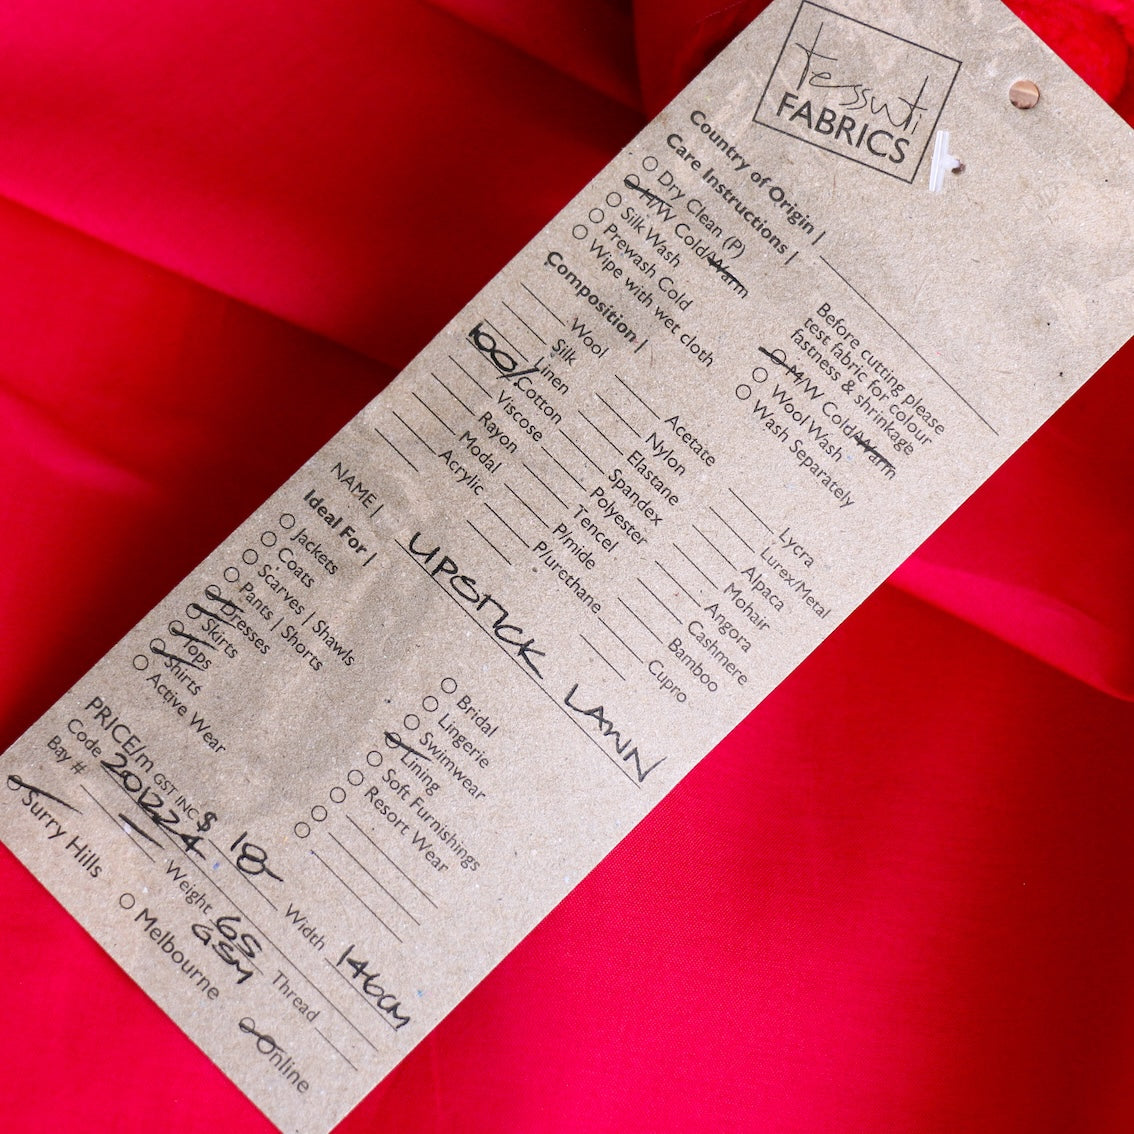 tessuti
FABRICS
Country of Origin |
Care Instructions |
Dry Clean (P)
H/W Cold/Warm
Silk Wash
Prewash Cold
Wipe with wet cloth
Before cutting please
test fabric for colour
fastness & shrinkage
M/W Cold/Warm
Wool Wash
Wash Separately
Composition |
Wool
Silk
Linen
100% Cotton
Viscose
Rayon
Modal
Acrylic
Acetate
Nylon
Elastane
Spandex
Polyester
Tencel
P/mide
P/urethane
Lycra
Lurex/Metal
Alpaca
Mohair
Angora
Cashmere
Bamboo
Cupro
NAME | LIPSTICK LAWN
Ideal For |
Jackets
Coats
Scarves | Shawls
Pants | Shorts
Dresses
Skirts
Tops
Shirts
Active Wear
Bridal
Lingerie
Swimwear
Lining
Soft Furnishings
Resort Wear
PRICE/m GST INC $ 18- Width 146CM
Code Weight 65 GSM Thread
Bay #
Surry Hills
Melbourne
Online